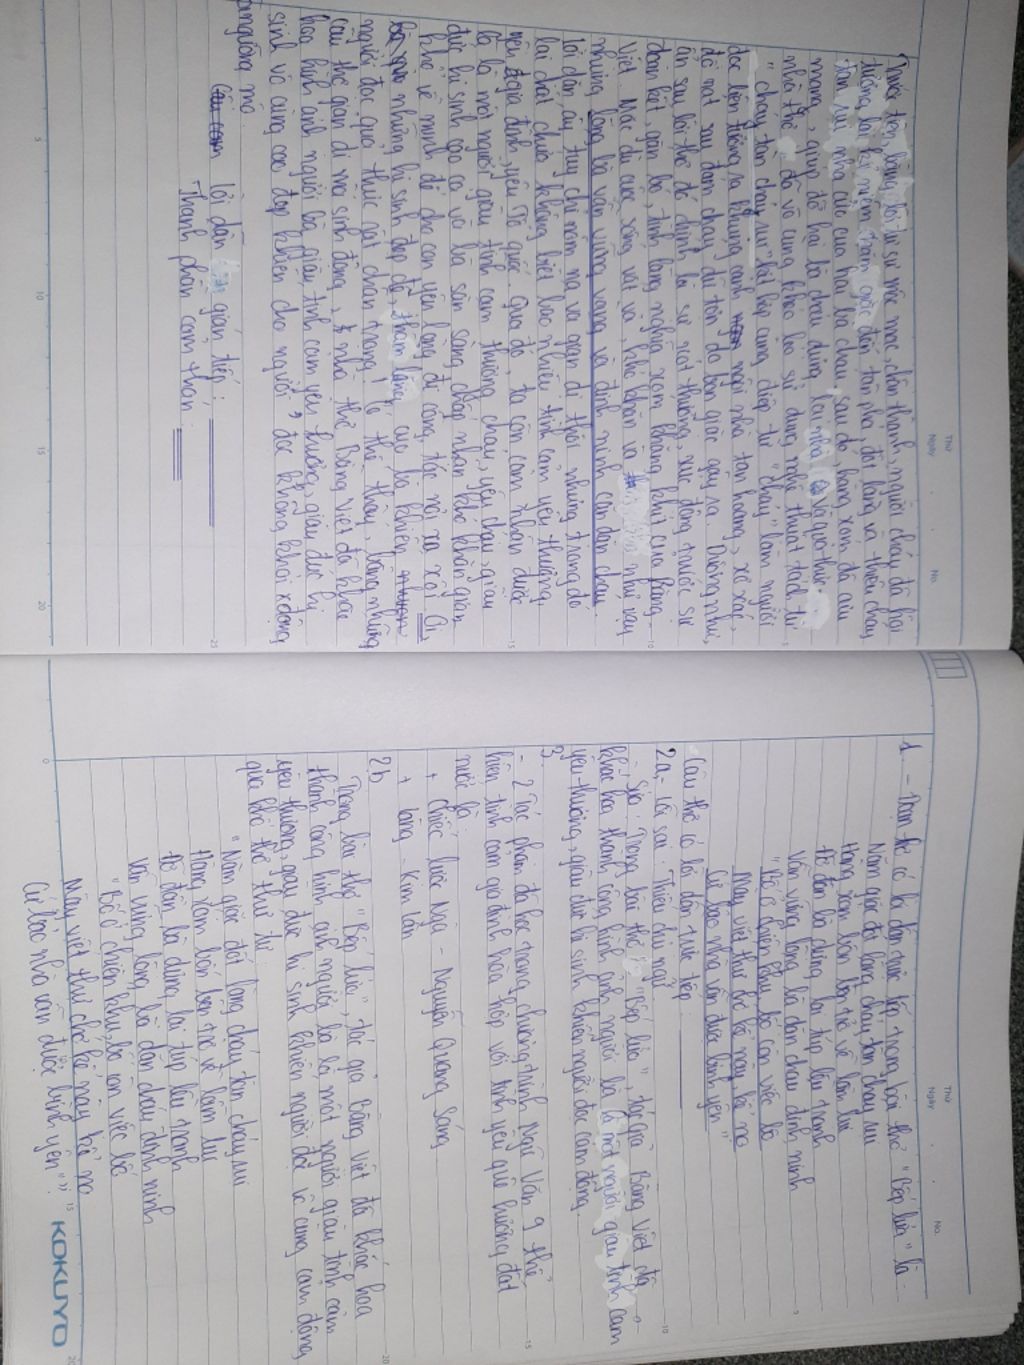 Thứ
Ngày
No.
1. - Đoạn thơ có lời dẫn trực tiếp trong bài thơ "Bếp lửa" là
Năm giặc đốt làng cháy tàn cháy rụi
Hàng xóm bốn bên trở về lầm lụi
Đỡ đần bà dựng lại túp lều tranh
Vẫn vững lòng bà dặn cháu đinh ninh
"Bố ở chiến khu, bố còn việc bố
Mày viết thư chớ kể này kể nọ
Cứ bảo nhà vẫn được bình yên"
Câu thơ có lời dẫn trực tiếp:
2a, - Lỗi sai: Thiếu chủ ngữ
- Sửa: Trong bài thơ "Bếp lửa", tác giả Bằng Việt đã
khắc họa thành công hình ảnh người bà là một người giàu tình cảm
yêu thương, giàu đức hi sinh khiến người đọc cảm động.
3.
- 2 Tác phẩm đã học trong chương trình Ngữ Văn 9 thể
hiện tình cảm gia đình hòa hợp với tình yêu quê hương đất
nước là:
+ Chiếc lược Ngà - Nguyễn Quang Sáng
+ Làng - Kim Lân
2b
Trong bài thơ "Bếp lửa", tác giả Bằng Việt đã khắc họa
thành công hình ảnh người bà là một người giàu tình cảm
yêu thương, giàu đức hi sinh khiến người đọc vô cùng cảm động
qua khổ thơ thứ tư
"Năm giặc đốt làng cháy tàn cháy rụi
Hàng xóm bốn bên trở về lầm lụi
Đỡ đần bà dựng lại túp lều tranh
Vẫn vững lòng, bà dặn cháu đinh ninh
"Bố ở chiến khu, bố còn việc bố
Mày viết thư chớ kể này kể nọ
Cứ bảo nhà vẫn được bình yên"".
KOKUYO
Thứ
Ngày
No.
Trước tiên, bằng lời tự sự mộc mạc, chân thành, người cháu đã hồi
tưởng lại kỉ niệm năm giặc đến tàn phá, đốt làng và thiêu cháy
nhà cửa của hai bà cháu, sau đó hàng xóm đã cưu
mang, giúp đỡ hai bà cháu dựng lại nhà Và qua thực
nhà thơ đã vô cùng khéo léo sử dụng nghệ thuật tách từ
"cháy tàn cháy rụi" kết hợp cùng điệp từ "cháy" làm người
đọc liên tưởng ra khung cảnh ngôi nhà tan hoang, xơ xác,
đổ nát sau đám cháy dữ tợn do bọn giặc gây ra. Dường như,
ẩn sau lời thơ đó chính là sự xót thương, xúc động trước sự
đoàn kết, gắn bó, tình làng nghĩa xóm kháng khít của Bằng
Việt. Mặc dù cuộc sống vất vả, khó khăn và như vậy
nhưng lòng bà vẫn vững vàng và đinh ninh căn dặn cháu.
Lời dặn ấy tuy chỉ nôm na và giản dị thôi nhưng trong đó
lại chất chứa không biết bao nhiêu tình cảm yêu thương,
yêu gia đình, yêu Tổ quốc. Qua đó, ta còn cảm nhận được
bà là một người giàu tình cảm thương cháu, yêu cháu, giàu
đức hi sinh cao cả vì bà sẵn sàng chấp nhận khó khăn gian
khổ về mình để cho con yên lòng đi công tác nơi xa xôi. Ôi,
những hi sinh đẹp đẽ, thầm lặng của bà khiến
người đọc quả thực rất trân trọng! Có thể thấy, bằng những
câu thơ giản dị mà sinh động, nhà thơ Bằng Việt đã khắc
họa hình ảnh người bà giàu tình cảm yêu thương, giàu đức hy
sinh vô cùng cao đẹp khiến cho người đọc không khỏi xđộng
ngưỡng mộ.
Lời dẫn gián tiếp:
Thành phần cảm thán: